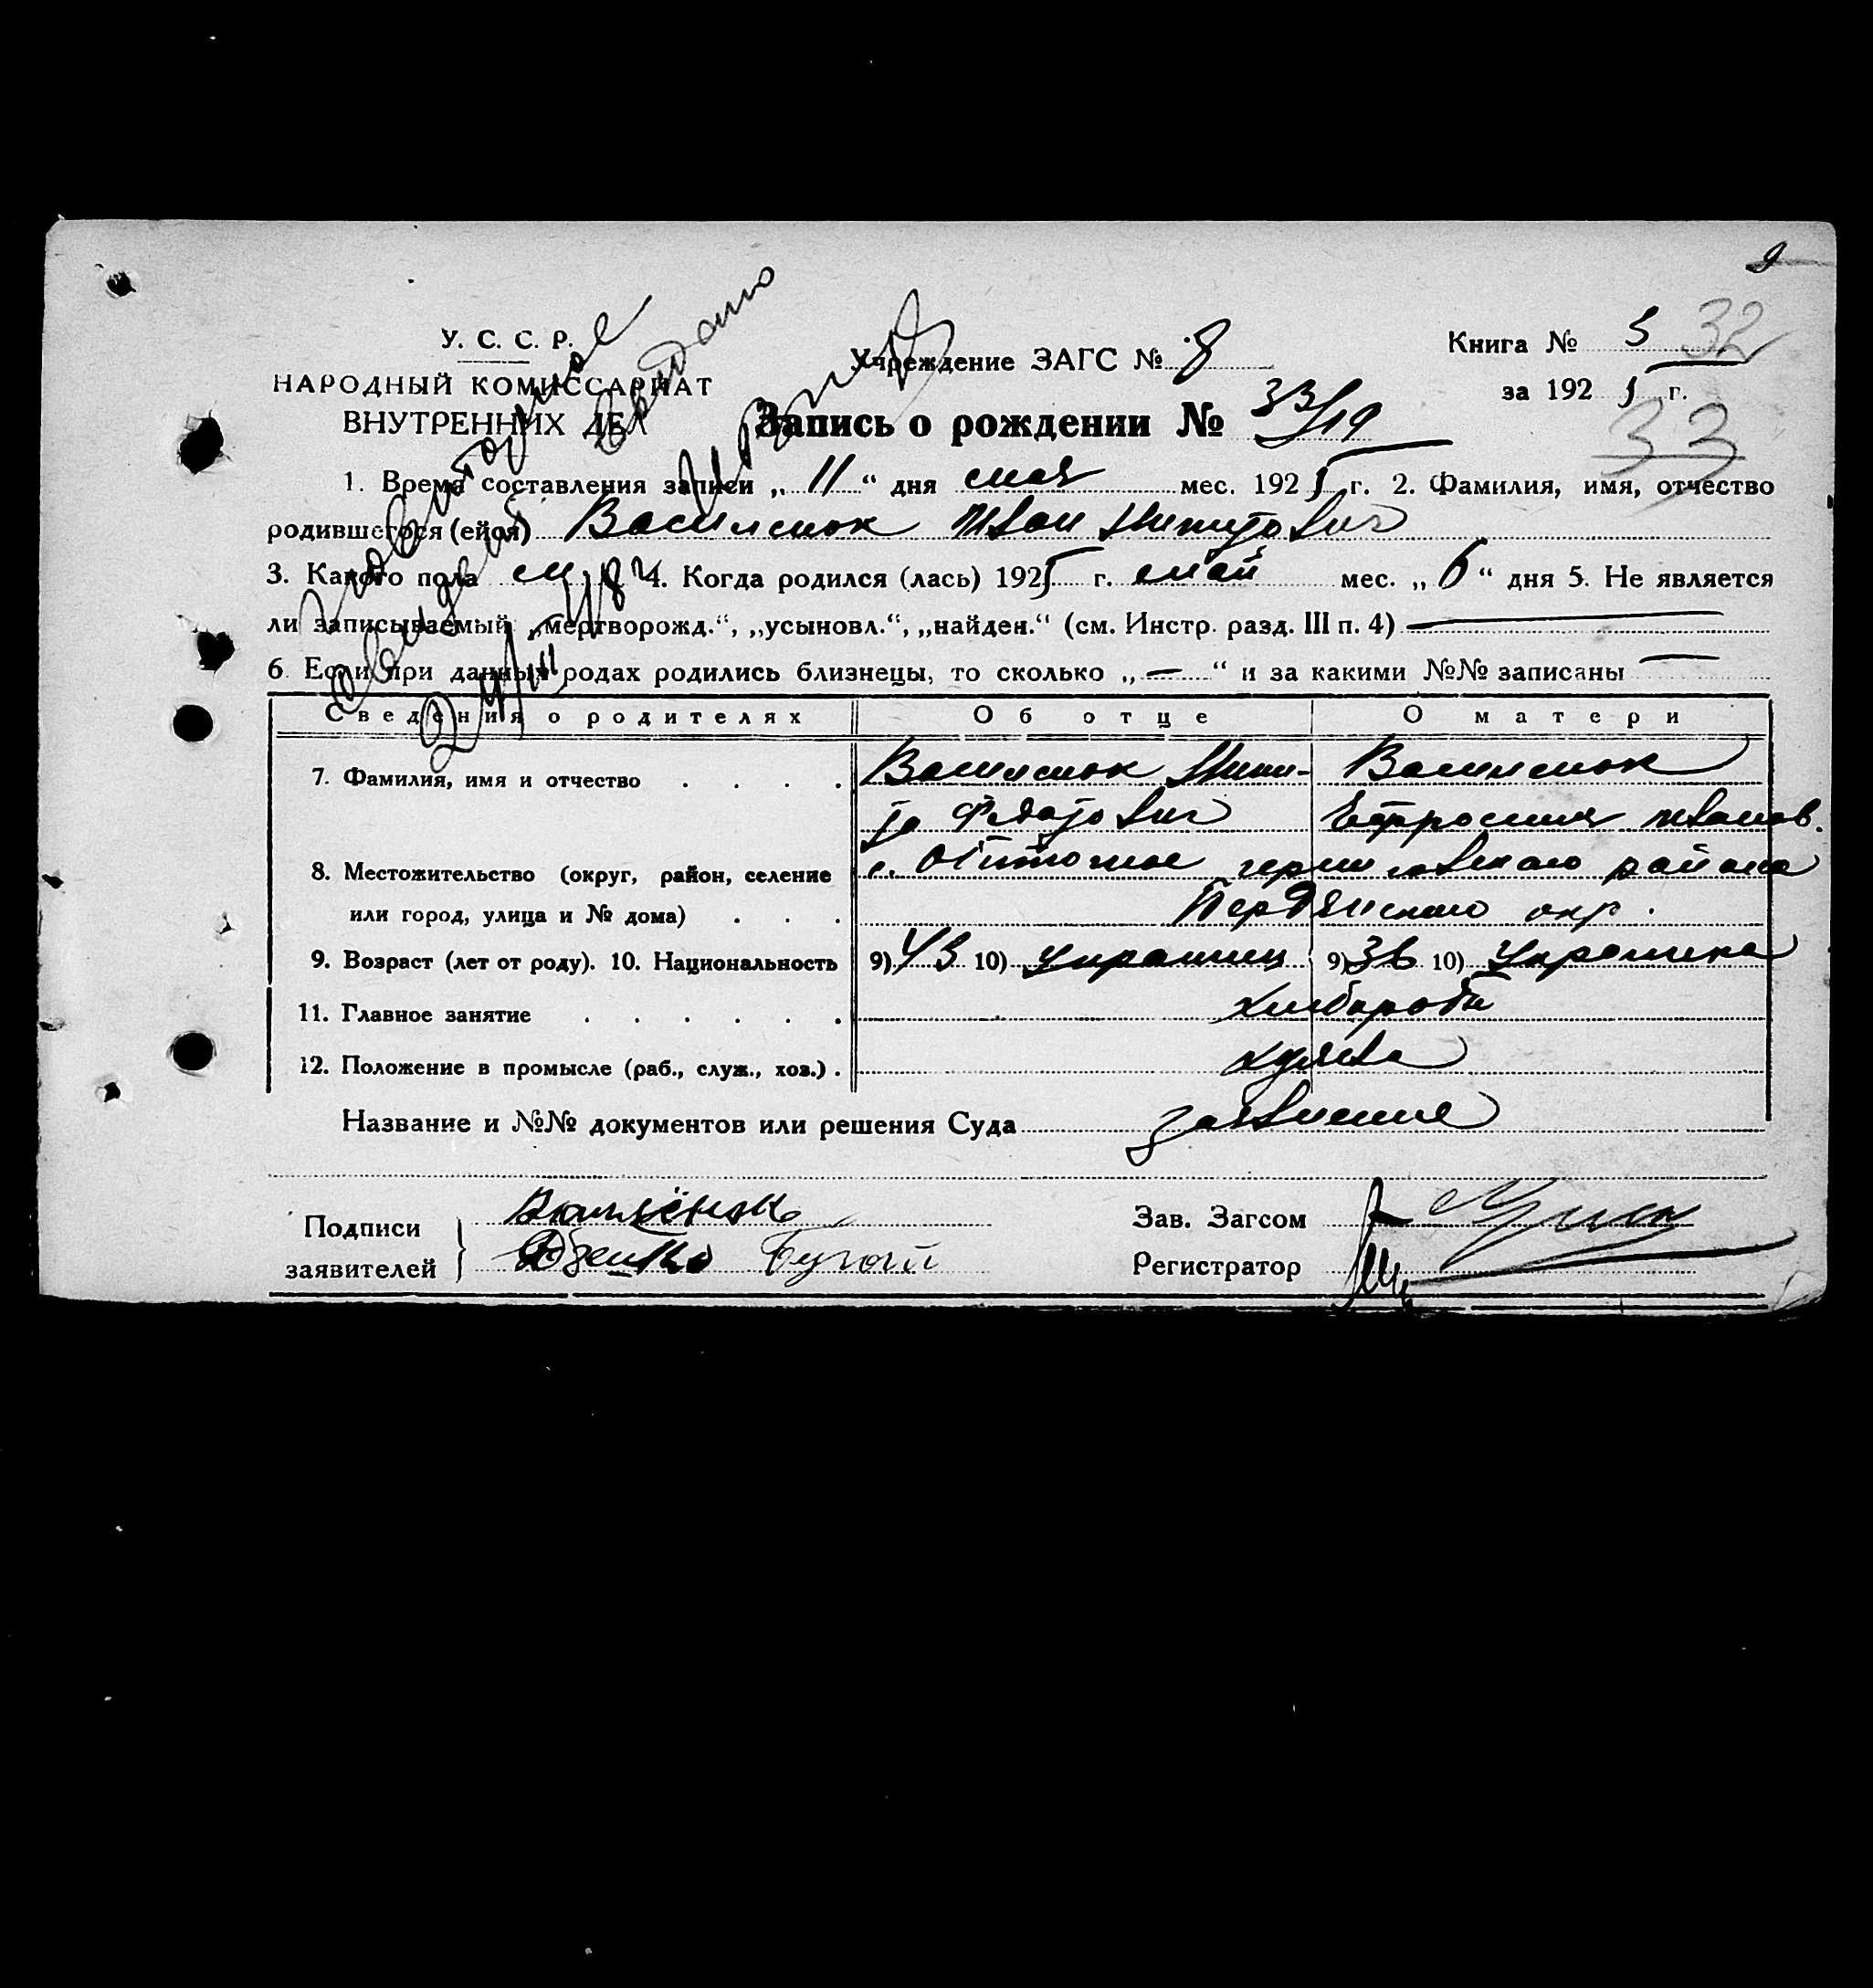 У. С. С. Р.
НАРОДНЫЙ КОМИССАРИАТ
ВНУТРЕННИХ ДЕЛ
Учреждение ЗАГС № 8
Книга № 5 32
за 1925 г.
33
Запись о рождении № 33/19
1. Время составления записи „ 11 “ дня мая мес. 1925 г. 2. Фамилия, имя, отчество
родившегося (ейся) Василенюк Иван Никитович
3. Какого пола м 4. Когда родился (лась) 1925 г. май мес. „ 6 “ дня 5. Не является
ли записываемый „мертворожд.“, „усыновл.“, „найден.“ (см. Инстр. разд. III п. 4) —
6. Если при данных родах родились близнецы, то сколько „ — “ и за какими №№ записаны —
Повторное
свидет. выдано
Сведения о родителях Об отце О матери
7. Фамилия, имя и отчество . . . . Василенюк Ники- Василенюк
та Федотович Ефросиния Иванов.
8. Местожительство (округ, район, селение
или город, улица и № дома) . . . района
Бердянского окр.
9. Возраст (лет от роду). 10. Национальность 9) 43 10) украинец 9) 36 10) украинка
11. Главное занятие . . . . . . хлибороби
12. Положение в промысле (раб., служ., хоз.) .
Название и №№ документов или решения Суда заявление
Подписи
заявителей
Бугай
Зав. Загсом
Регистратор